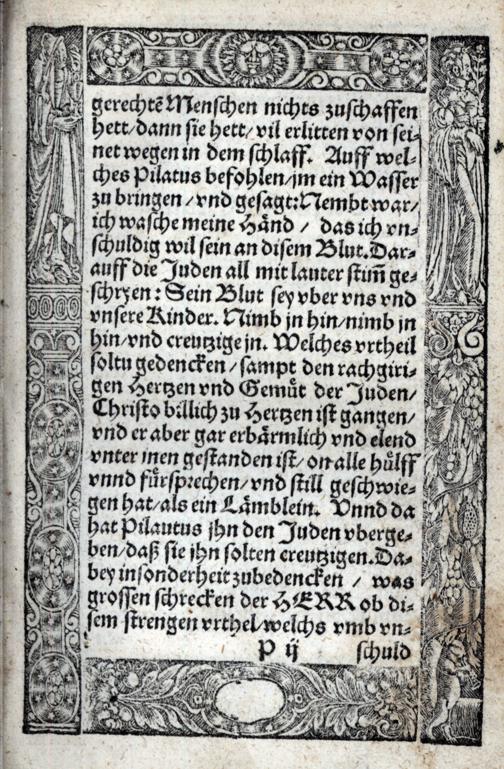 gerechtē Menschen nichts zuschaffen
hett/dann sie hett/vil erlitten von sei⸗
net wegen in dem schlaff. Auff wel⸗
ches Pilatus befohlen/jm ein Wasser
zu bringen/vnd gesagt: Nembt war/
ich wasche meine Händ/ das ich vn⸗
schuldig wil sein an disem Blut. Dar⸗
auff die Juden all mit lauter stim̄ ge⸗
schryen: Sein Blut sey vber vns vnd
vnsere Kinder. Nimb jn hin/nimb jn
hin/vnd creutzige jn. Welches vrtheil
soltu gedencken/sampt den rachgiri⸗
gen Hertzen vnd Gemüt der Juden/
Christo billich zu Hertzen ist gangen/
vnd er aber gar erbärmlich vnd elend
vnter jnen gestanden ist/on alle hülff
vnnd fürsprechen/vnd still geschwie⸗
gen hat/als ein Lämblein. Vnnd da
hat Pilautus jhn den Juden vberge⸗
ben/daß sie jhn solten creutzigen. Da⸗
bey insonderheit zubedencken / was
grossen schrecken der HERR ob di⸗
sem strengen vrthel/welchs vmb vn⸗
P ij schuld